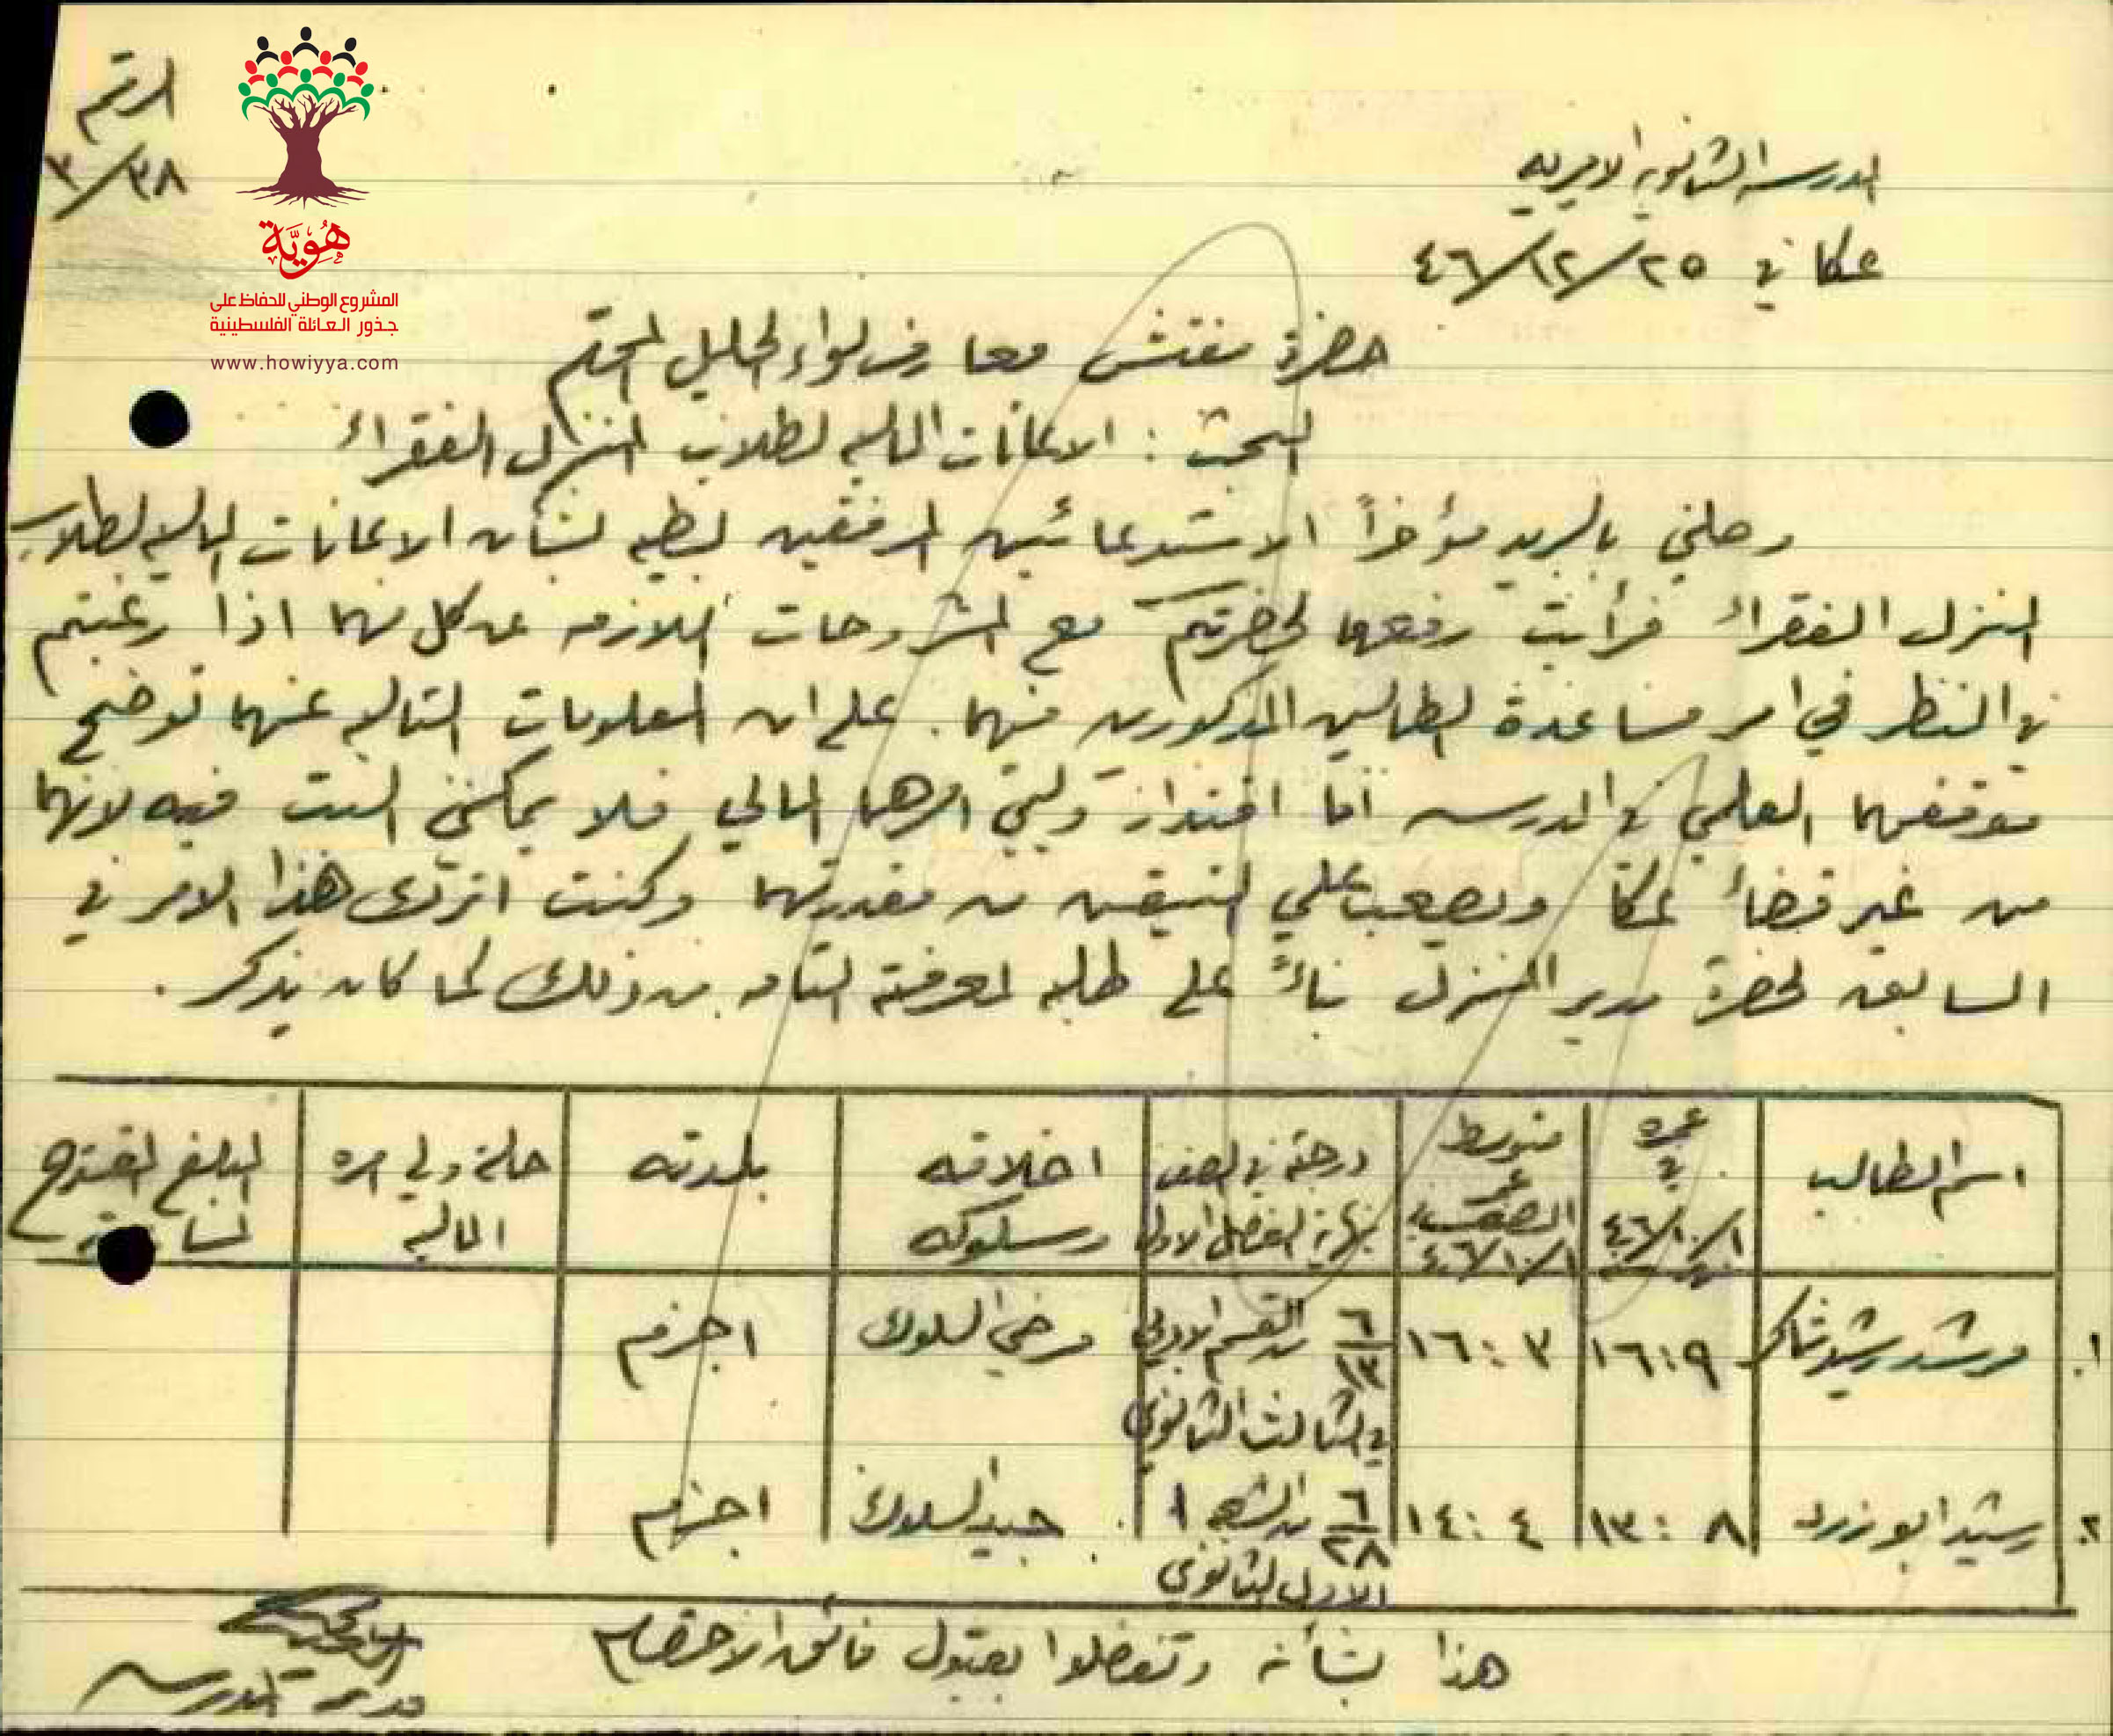 الرقم
٣/٣٨
هُوِيَّة
المشروع الوطني للحفاظ على
جذور العائلة الفلسطينية
www.howiyya.com
المدرسة الثانوية الاميرية
عكا في ٢٥/١٢/٤٦
حضرة مفتش معارف لواء الجليل المحترم
البحث : الاعانات المالية لطلاب المنزل الفقراء
وصلني بالبريد مؤخراً الاستدعائين المرفقين لطيه بشأن الاعانات المالية لطلاب
المنزل الفقراء فرأيت رفعهما لحضرتكم مع الشروحات اللازمة عن كل منهما اذا رغبتم
في النظر في امر مساعدة الطالبين المذكورين منهما. على ان المعلومات التالية عنهما توضح
موقفهما العلمي في المدرسة أما اقتدار وليي امرهما المالي فلا يمكنني البت فيه لانهما
من غير قضاء عكا ويصعب علي التيقن من مقدرتهما وكنت اترك هذا الامر في
السابق لحضرة مدير المنزل بناءً على طلبه لمعرفته التامة من ذلك كما كان يذكر.
اسم الطالب
عمره في ٤٦/١٠/١
متوسط عمر الصف ٤٦/١٠/١
درجته في الصف نهاية الفصل الاول
اخلاقه وسلوكه
بلدته
حالة ولي امره المالية
المبلغ المقترح
١. مرشد رشيد شاكر ١٦:٩ ١٦:٣ ٦/١٣ من القسم الادبي في الثالث الثانوي مرضي السلوك اجزم
٢. رشيد ابو زرد ١٣:٨ ١٤:٤ ٦/٢٨ من الشعبة ١ الاول الثانوي جيد السلوك اجزم
هذا بشأنه وتفضلوا بقبول فائق الاحترام
مدير المدرسة